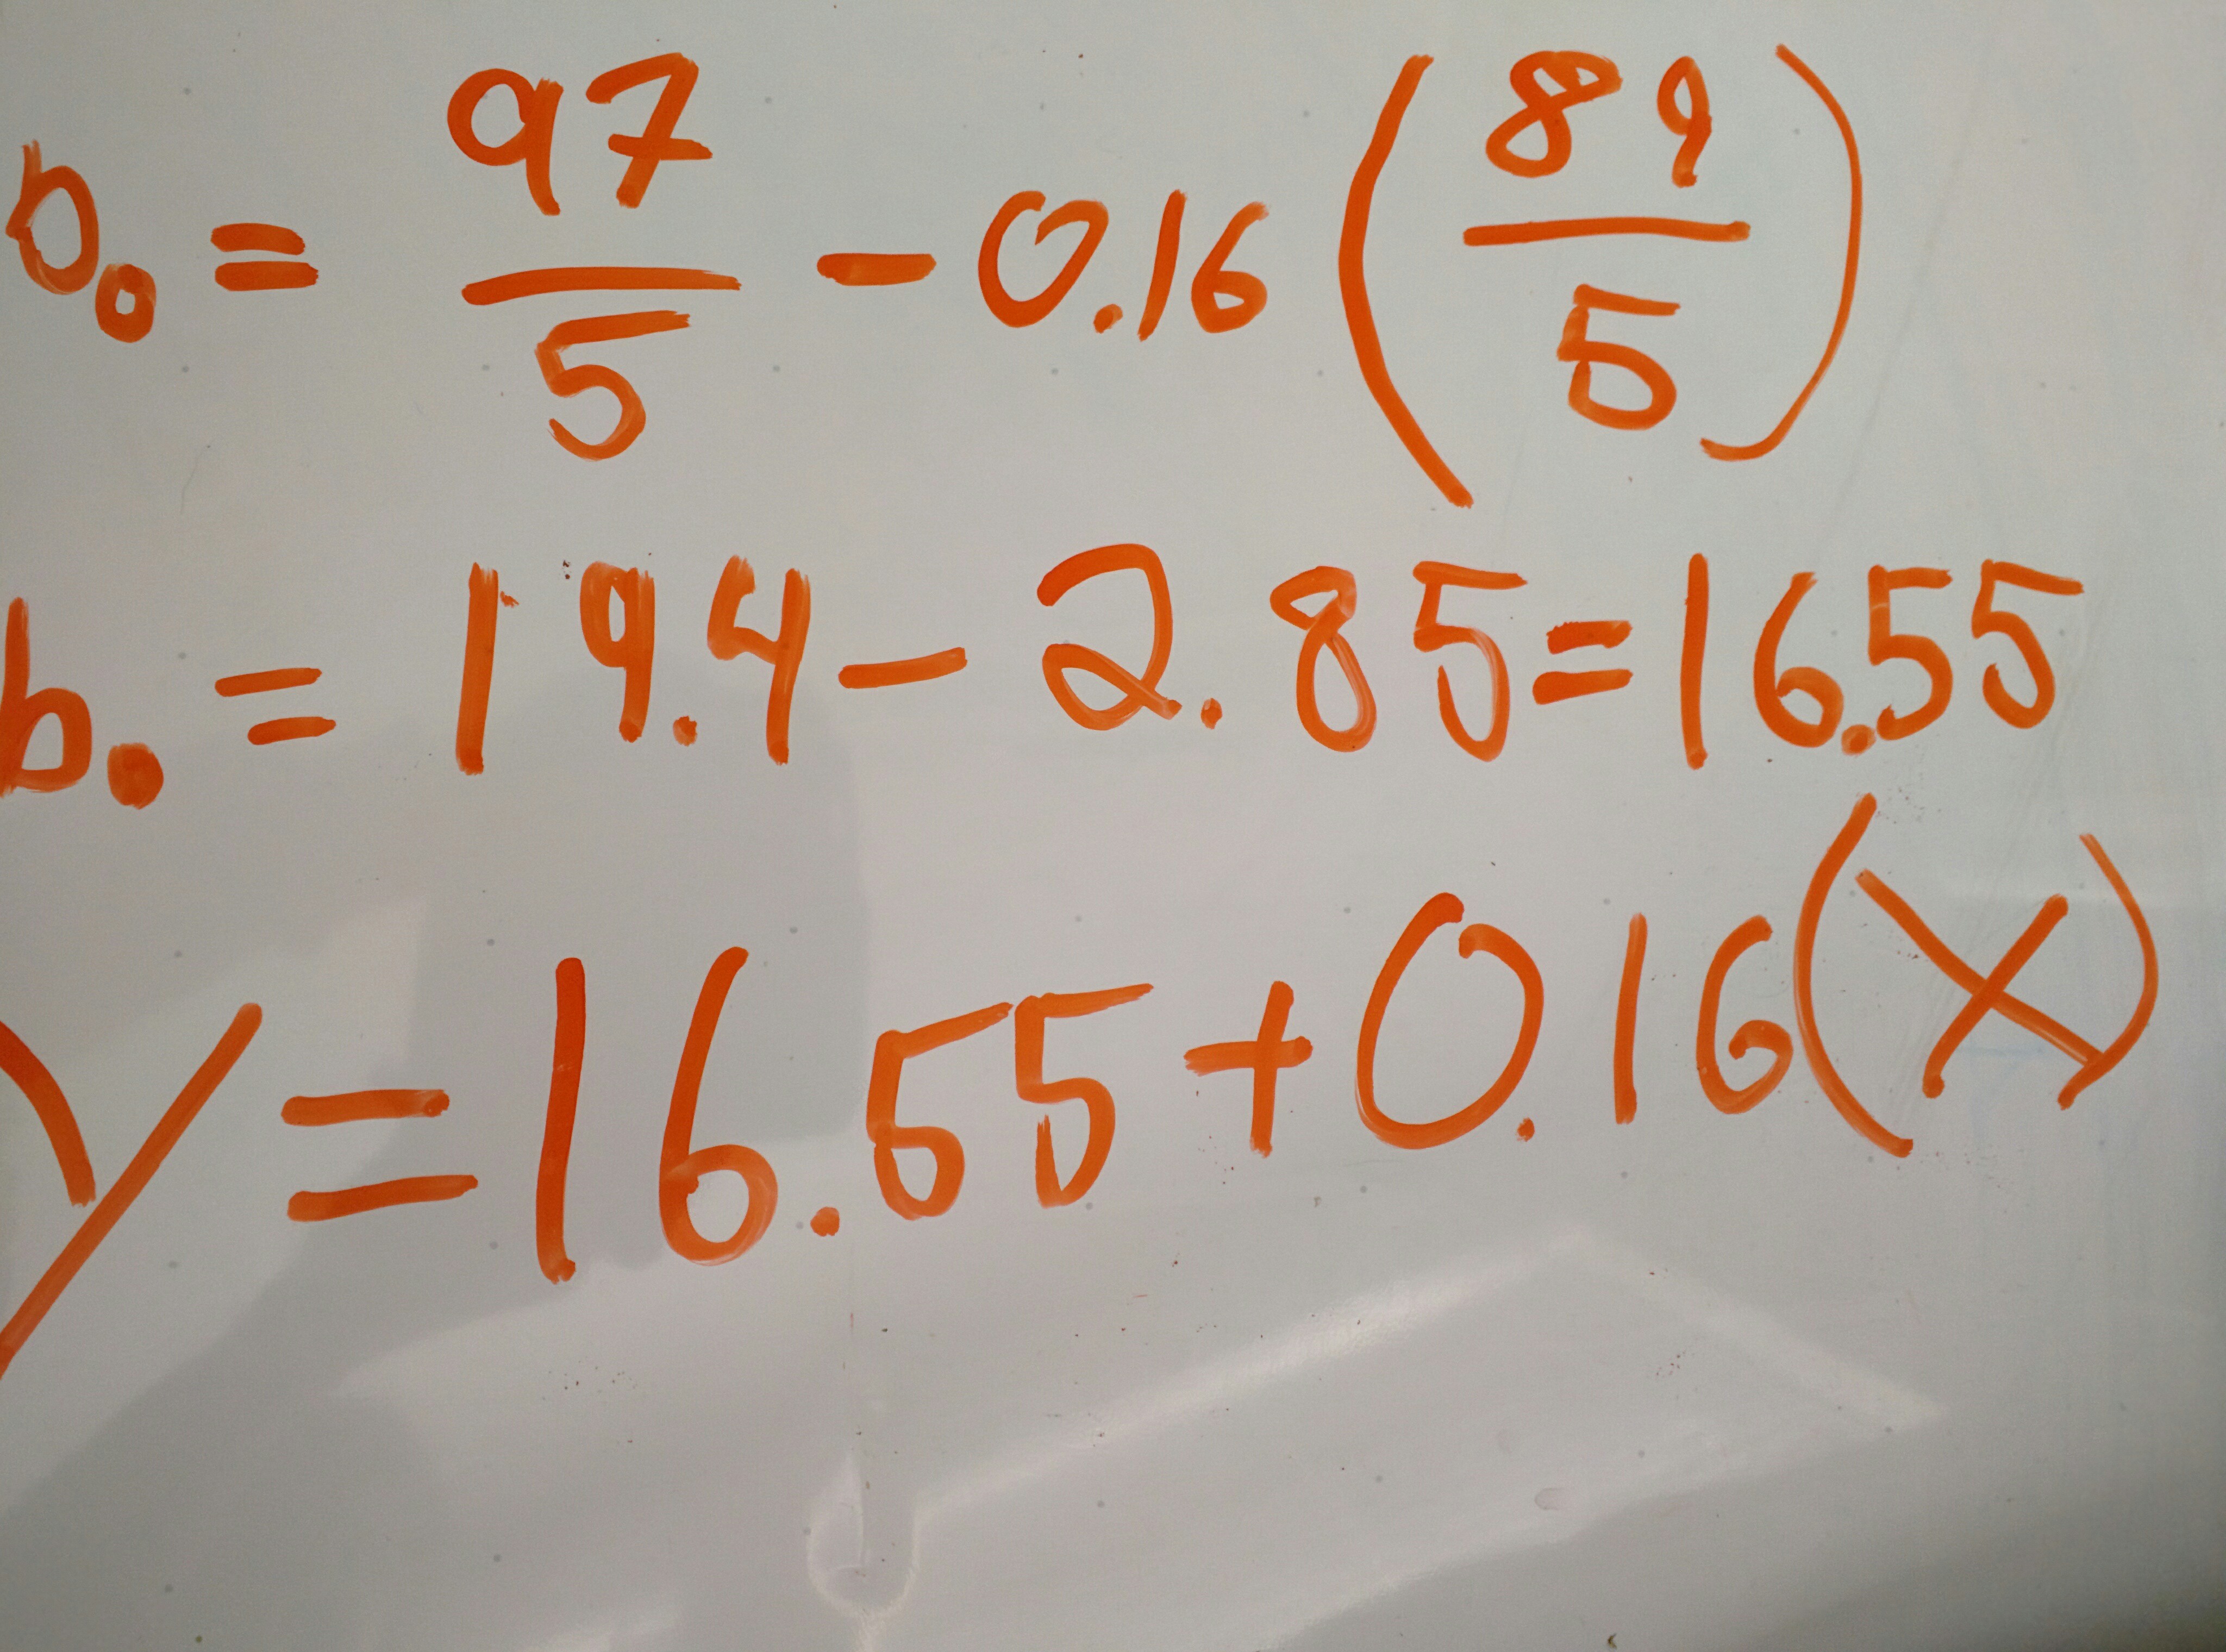 b₀ = 97/5 - 0.16 (89/5)
b₀ = 19.4 - 2.85 = 16.55
y = 16.55 + 0.16(x)